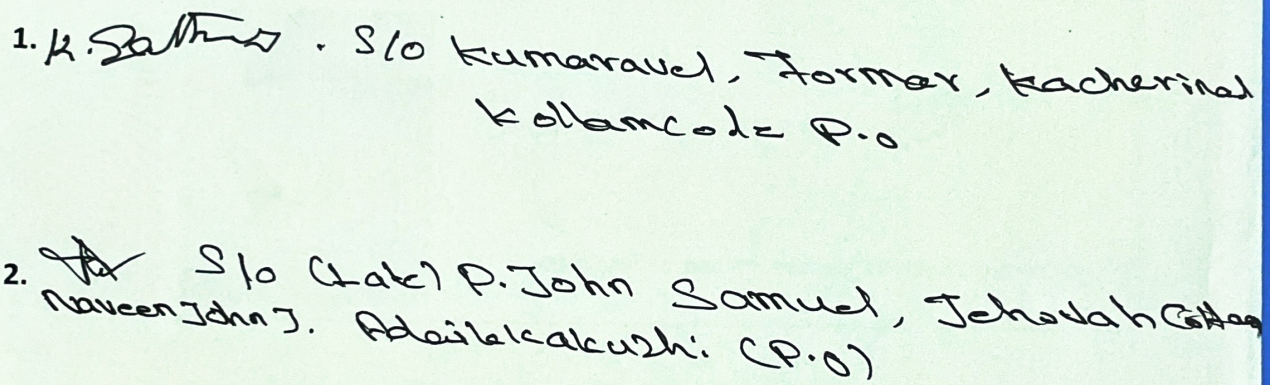 1. K. S/o Kumaravel, Former, Kacherinad
Kollamcode P.O
2. S/o (Late) P. John Samuel, Jehovah Cottag
Naveen John J. Adailakakuzhi (P.O)